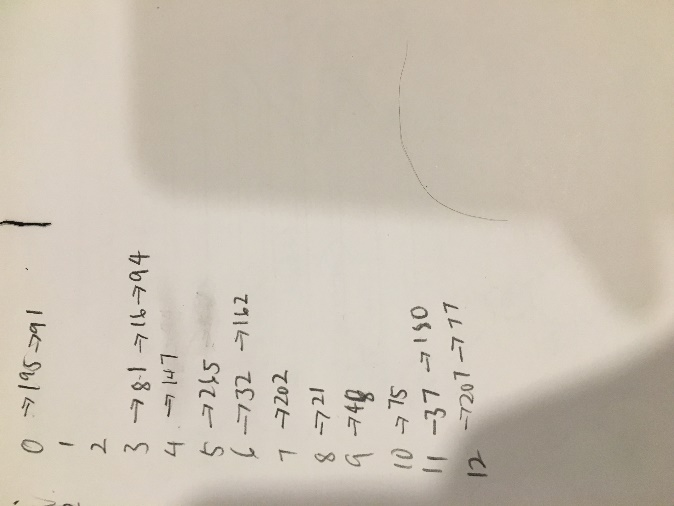 0 →195→91
1
2
3 →81→16→94
4 →147
5 →265
6 →32 →162
7 →202
8 →21
9 →48
10 →75
11 -37 →180
12 →207→77